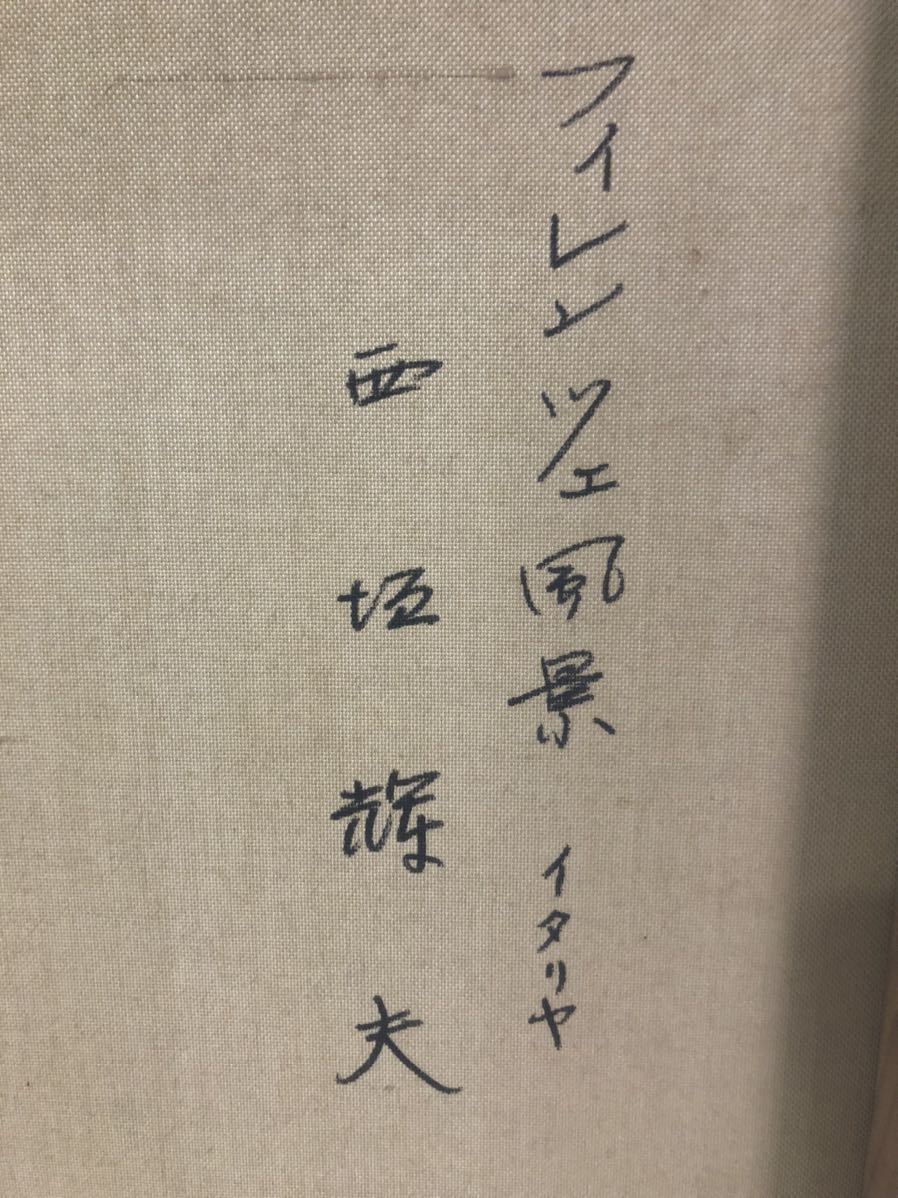 フィレンツェ風景 イタリヤ
西垣輝夫